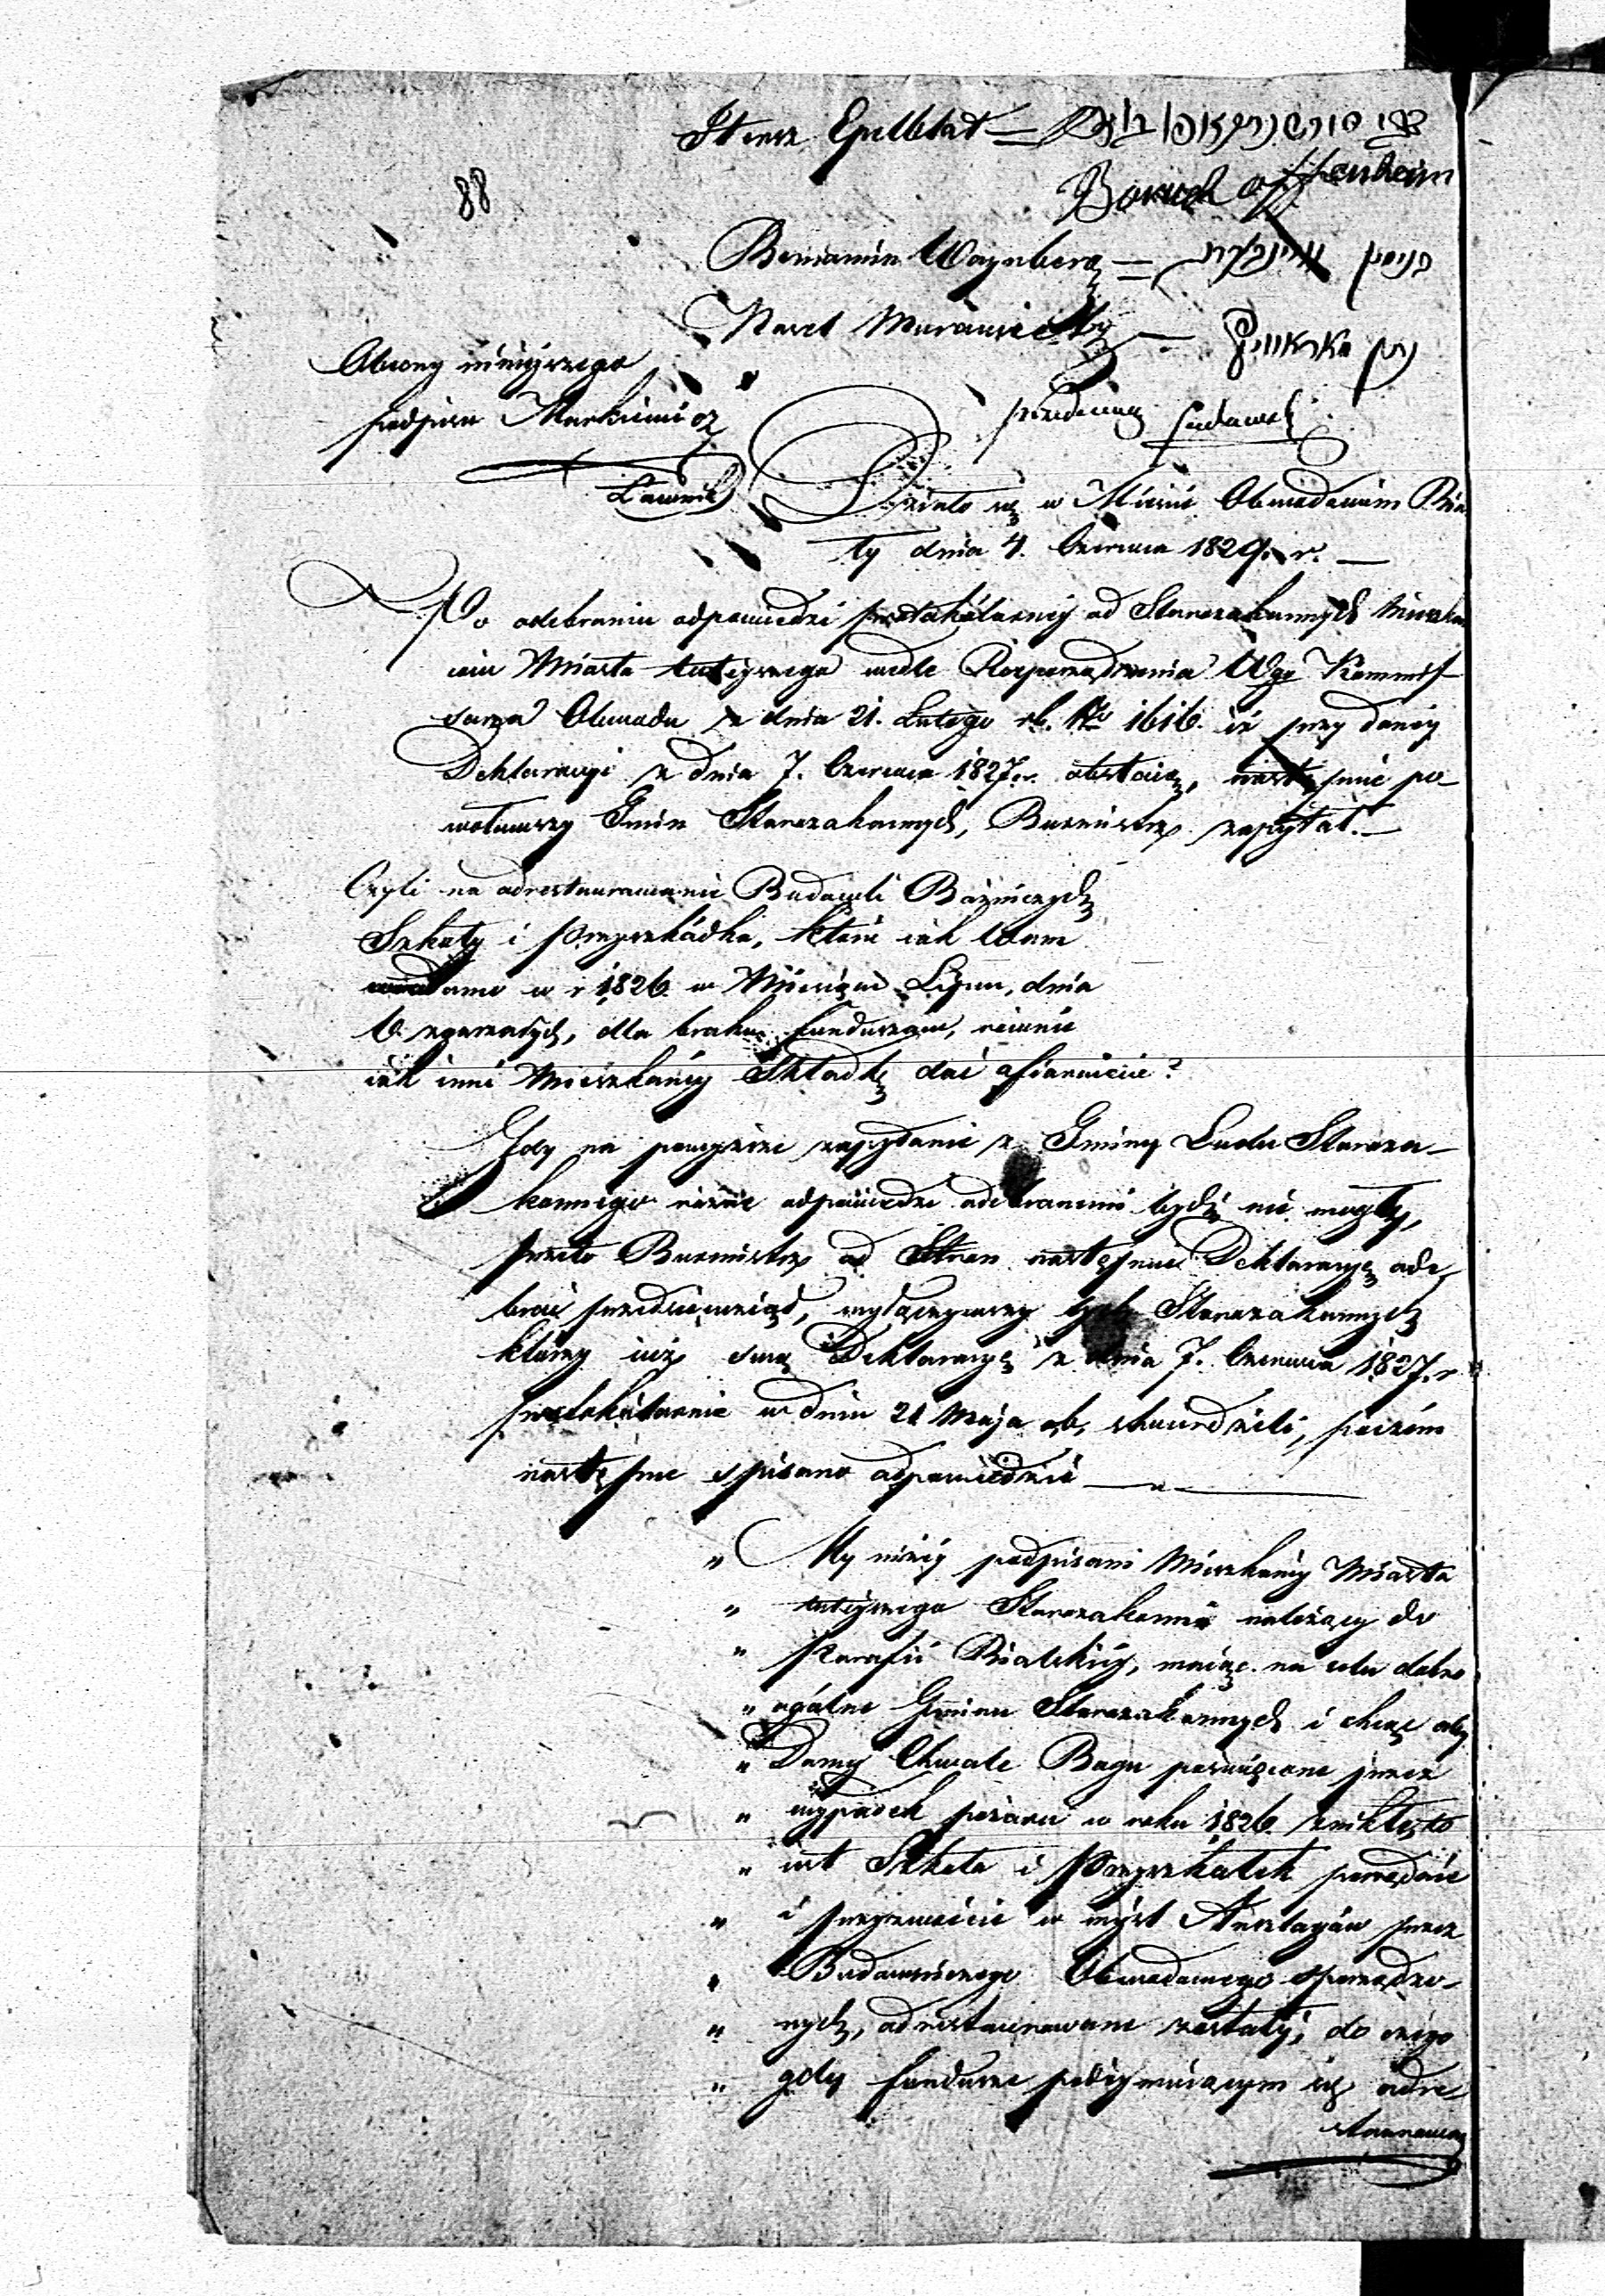 88
Epelblat =
Boruch Oppenheim
Beniamin Waynberg =
Obecny ninieyszego
podpisu Markiewicz
Ławnik
Działo się w Mieście Obwodowém Bia
ły dnia 4. Czerwca 1829. r. —
Po odebraniu odpowiedzi protokólarnéy od Starozakonnych Mieszkań
ców Miasta tuteyszego wedle Rozporządzenia Wgo Kommis-
sarza Obwodu z dnia 21. Lutego rb. No 1616. iż przy danéy
Deklaracyi z dnia 7. Czerwca 1827. r. obstaią, następnie po-
woławszy Gmin Starozakonnych, Burmistrz zapytał. —
Czyli na odrestaurowanie Budowli Bóżniczych
Szkoły i Przyszkółka, które iak Wam
wiadomo w r 1826. w Miesiącu Lipcu, dnia
zgorzałych, dla braku funduszów, równie
iak inni Mieszkańcy Składkę dać ofiaruiecie?
Gdy na powyższe zapytanie z Gminy Ludu Staroza-
konnego różne odpowiedzi odebranemi bydź nie mogły,
przeto Burmistrz od Stron następne Deklaracye ode-
brać przedsięwziął, wyłączywszy tych Starozakonnych
którzy iuż swą Deklaracyę z dnia 7. Czerwca 1827. r
protokólarnie w dniu 21 Maja rb, stwierdzili, poczém
następne spisano odpowiedzie
" My niżéy podpisani Mieszkańcy Miasta
" tuteyszego Starozakonni należący do
" Parafii Bialskiéy, maiąc na celu dobro
" ogólne Gminu Starozakonnych i chcąc aby
" Domy Chwale Bogu poświęcone przez
" wypadek pożaru w roku 1826. znikłe, to
" iest Szkoła i Przyszkołek porządnie
" i przyzwoicie w myśl Anszlagów przez
" Budowniczego Obwodowego sporządzo-
" nych, odrestaurowane zostały; do czego
" gdy fundusze podéymuiącym się odre-
staurować